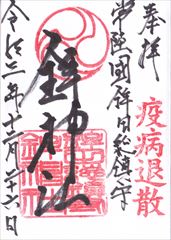 奉拝
疫病退散
常陸國鉾田総鎮守
鉾神社
令和二年十二月二十六日